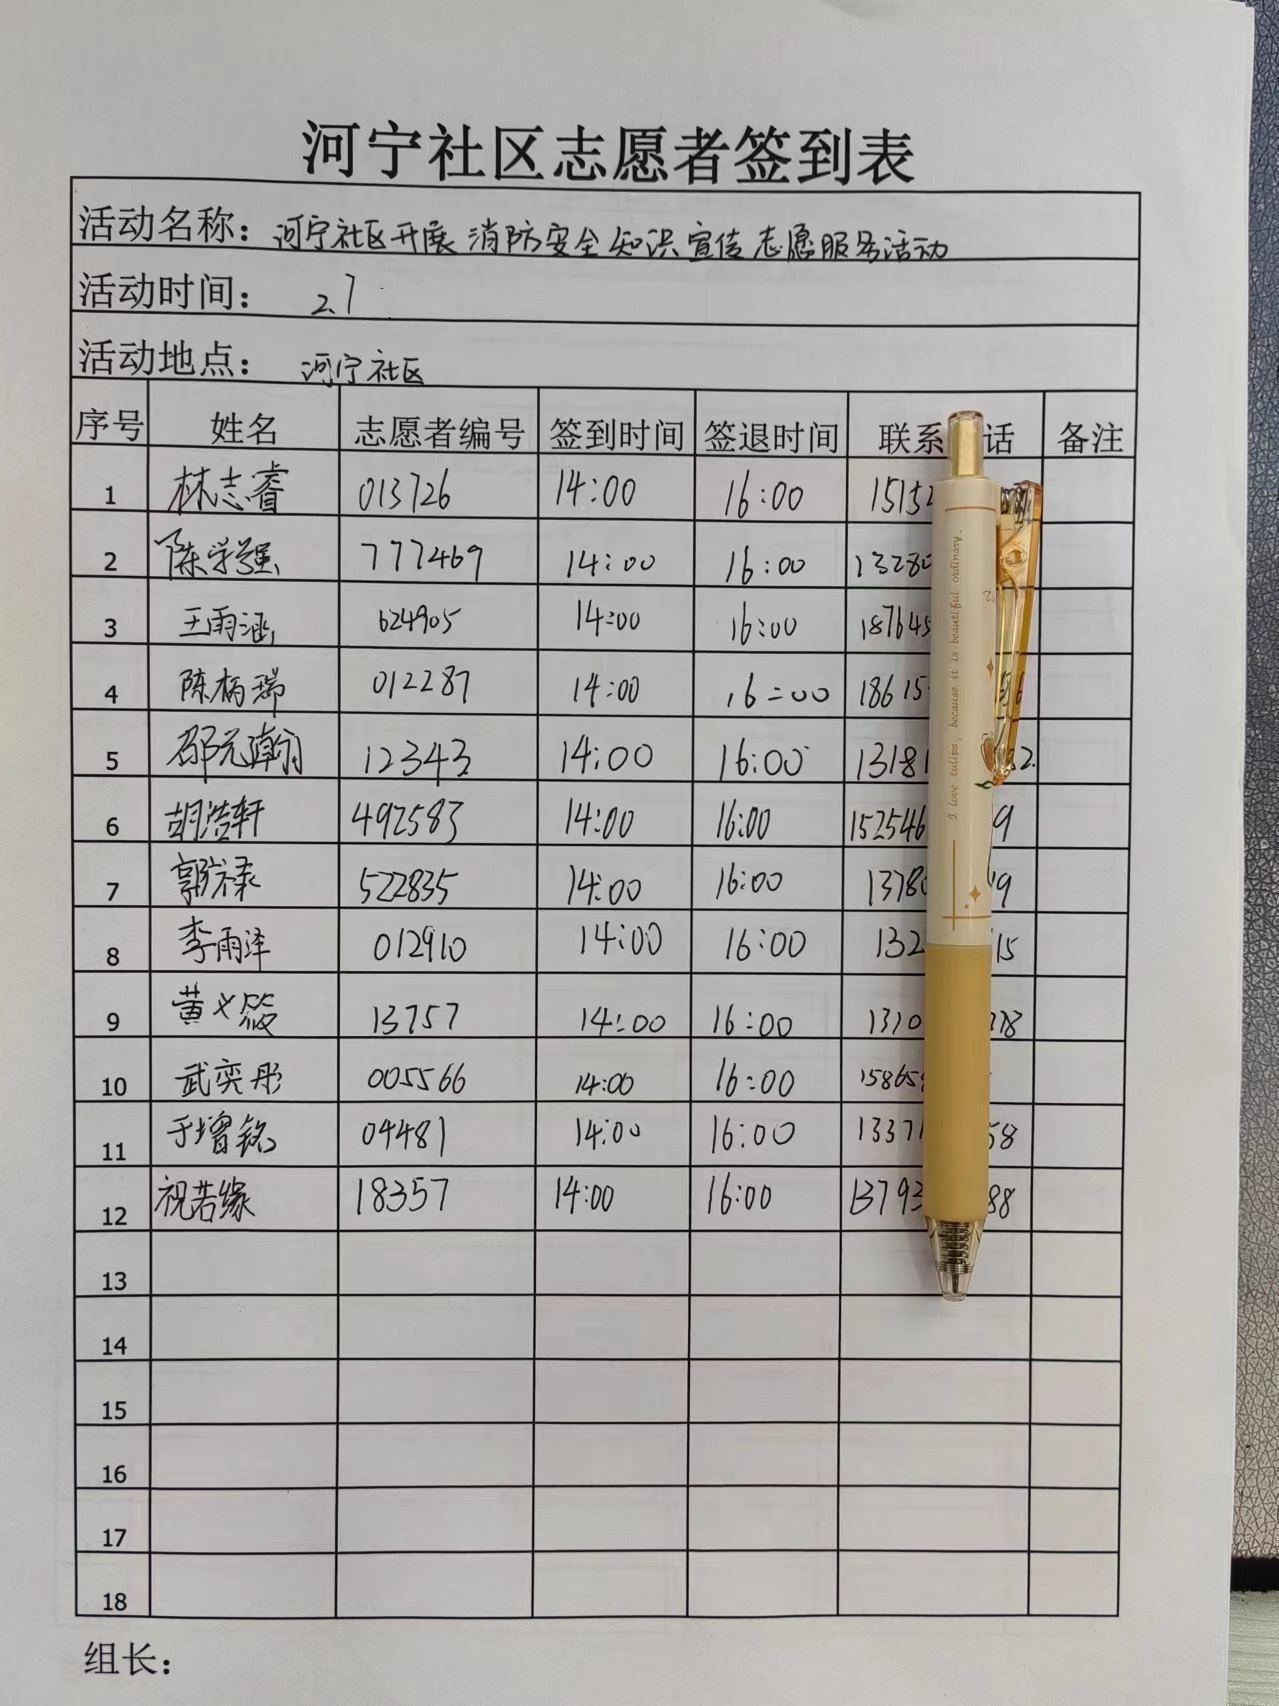 河宁社区志愿者签到表
活动名称：河宁社区开展消防安全知识宣传志愿服务活动
活动时间： 2.7
活动地点： 河宁社区
序号 姓名 志愿者编号 签到时间 签退时间 联系 话 备注
1 林志睿 013726 14:00 16:00 15152
2 陈学强 777469 14:00 16:00 13280
3 王雨涵 624905 14:00 16:00 187645
4 陈柄瑞 012287 14:00 16:00 18615
5 邵元瀚 12343 14:00 16:00 13181 2.
6 胡浩轩 492583 14:00 16:00 152546 9
7 郭禄 522835 14:00 16:00 1378 9
8 李雨泽 012910 14:00 16:00 132 15
9 黄义筱 13757 14:00 16:00 1310 78
10 武奕彤 005566 14:00 16:00 15865
11 于增铭 04481 14:00 16:00 1337 58
12 祝若缘 18357 14:00 16:00 13793 88
13
14
15
16
17
18
组长：
I love tulips, because it is beautiful ordinary.